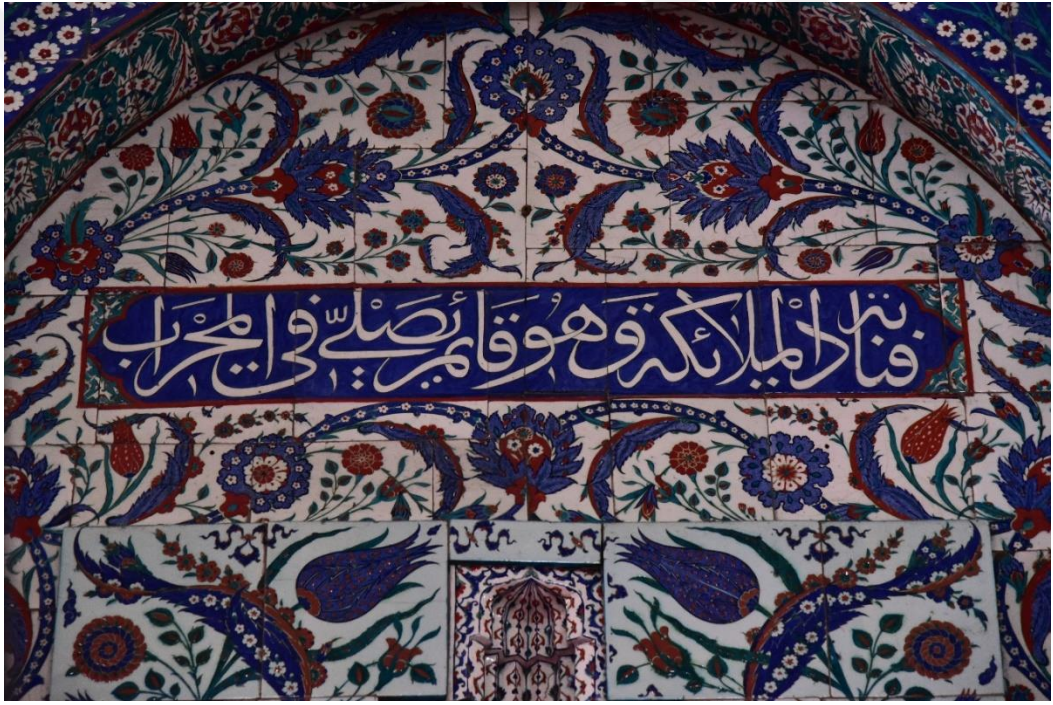 فنادته الملائكة وهو قائم يصلي في المحراب